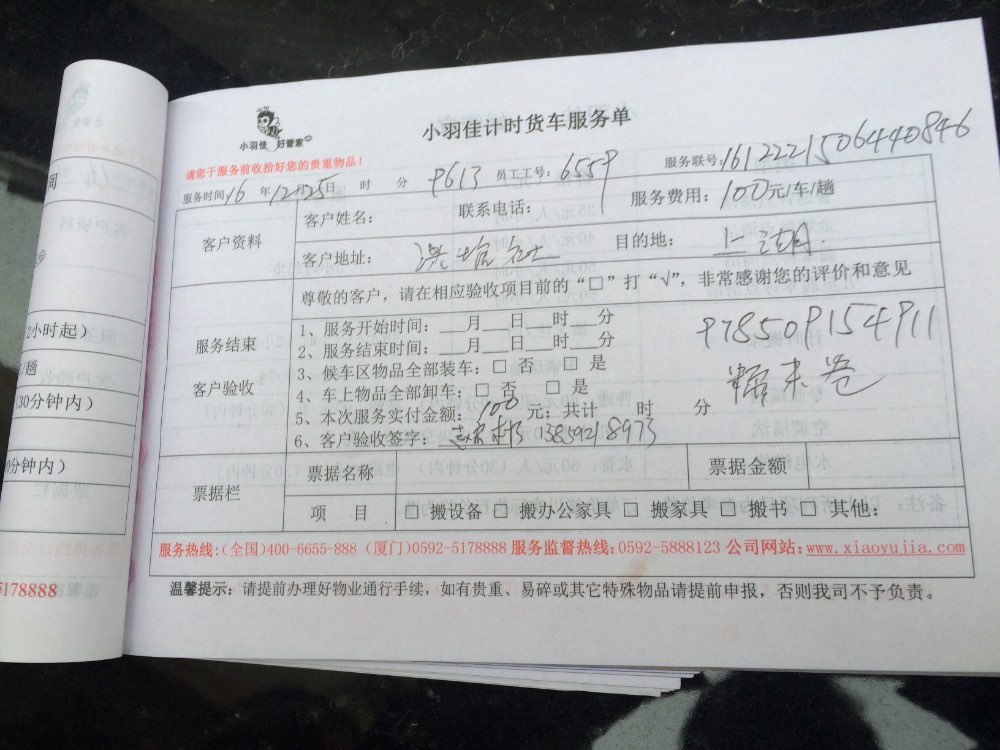 小羽佳 好管家
小羽佳计时货车服务单
请您于服务前收拾好您的贵重物品!
服务联号:1612221506440846
服务时间16年12月25日 时 分 9613 员工工号:6559
客户资料
客户姓名: 联系电话: 服务费用:100元/车/趟
客户地址: 目的地:
尊敬的客户,请在相应验收项目前的“□”打“√”,非常感谢您的评价和意见
服务结束
客户验收
1、服务开始时间:__月__日__时__分
2、服务结束时间:__月__日__时__分
3、候车区物品全部装车:□ 否 □ 是
4、车上物品全部卸车:□ 否 □ 是
5、本次服务实付金额:100元;共计 时 分
6、客户验收签字: 13859218973
978509154911
票据栏
票据名称 票据金额
项 目 □ 搬设备 □ 搬办公家具 □ 搬家具 □ 搬书 □ 其他:
服务热线:(全国)400-6655-888 (厦门)0592-5178888 服务监督热线:0592-5888123 公司网站:www.xiaoyujia.com
温馨提示:请提前办理好物业通行手续,如有贵重、易碎或其它特殊物品请提前申报,否则我司不予负责。
间
步
2小时起)
/趟
(30分钟内)
0分钟内)
5178888